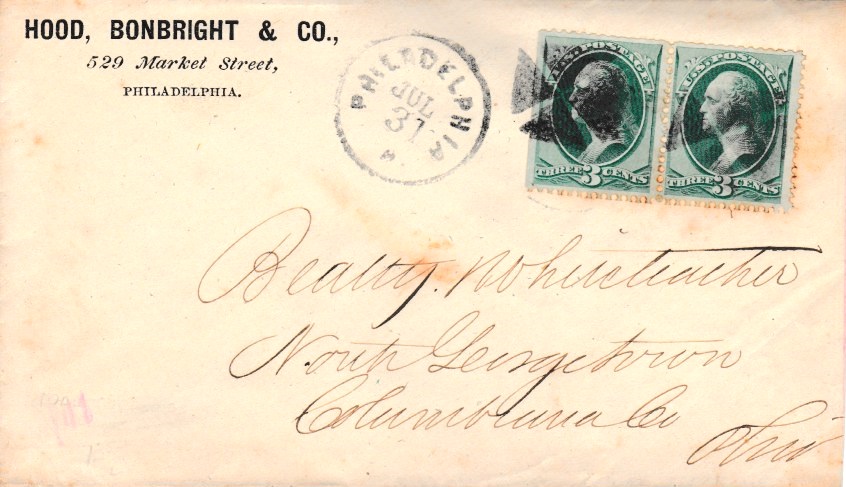 HOOD, BONBRIGHT & CO.,
529 Market Street,
PHILADELPHIA.
PHILADELPHIA
JUL
31
U.S. POSTAGE
THREE 3 CENTS
U.S. POSTAGE
THREE 3 CENTS
Beatty. Whiteleather
North Georgetown
Columbiana Co
Ohio